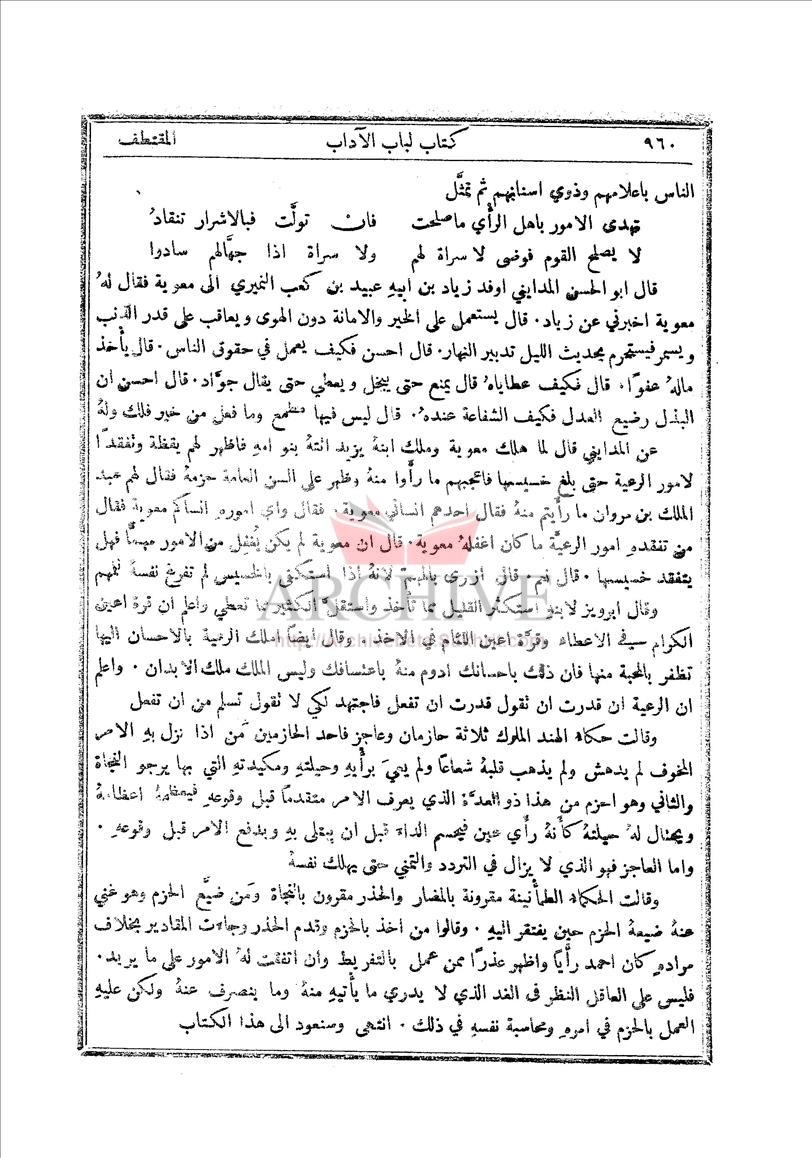 ٩٦٠ كتاب لباب الآداب المقتطف
الناس باعلامهم وذوي اسنانهم ثم تمثَّل
تهدى الامور باهل الرأي ما صلحت فان تولَّت فبالاشرار تنقادُ
لا يصلح القوم فوضى لا سراة لهم ولا سراة اذا جهَّالهم سادوا
قال ابو الحسن المدايني اوفد زياد بن ابيهِ عبيد بن كعب النميري الى معوية فقال لهُ
معوية اخبرني عن زياد. قال يستعمل على الخير والامانة دون الهوى ويعاقب على قدر الذنب
ويسمر فيستجرم بحديث الليل تدبير النهار. قال احسن فكيف يعمل في حقوق الناس. قال يأخذ
مالهُ عفوًا. قال فكيف عطاياهُ قال يمنع حتى يبخل ويعطي حتى يقال جوَّاد. قال احسن ان
البذل رضيع العدل فكيف الشفاعة عندهُ. قال ليس فيها مطمع وما فعل من خير فلك ولهُ
عن المدايني قال لما هلك معوية وملك ابنهُ يزيد اتتهُ بنو اميه فاظهر لهم يقظة وتفقدًا
لامور الرعية حتى بلغ خسيسها فاعجبهم ما رأوا منهُ وظهر على السن العامة حزمهُ فقال لهم عبد
الملك بن مروان ما رأيتم منهُ فقال احدهم انساني معوية. فقال واي امورهِ انساكم معوية فقال
من تفقدهِ امور الرعيَّة ما كان اغفلهُ معوية. قال ان معوية لم يكن يُغفِل من الامور مهمًّا فهل
يتفقد خسيسها. قال نعم. قال ازرى بالمهم لانهُ اذا استكفى بالخسيس لم تفرغ نفسهُ للمهم
وقال ابرويز لابنهِ استكثر القليل مما تأخذ واستقلَّ الكثير مما تعطي واعلم ان قرة اعين
الكرام في الاعطاء وقرَّة اعين اللئام في الاخذ. وقال ايضًا املك الرعية بالاحسان اليها
تظفر بالمحبة منها فان ذلك باحسانك ادوم منهُ باعتسافك وليس الملك ملك الابدان. واعلم
ان الرعية ان قدرت ان ثقول قدرت ان تفعل فاجتهد لكي لا ثقول تسلم من ان تفعل
وقالت حكماء الهند الملوك ثلاثة حازمان وعاجز فاحد الحازمين مَن اذا نزل بهِ الامر
المخوف لم يدهش ولم يذهب قلبهُ شعاعًا ولم يعيَ برأيهِ وحيلتهِ ومكيدتهِ التي بها يرجو النجاة
والثاني وهو احزم من هذا ذو العدَّة الذي يعرف الامر متقدمًا قبل وقوعهِ فيعظمهُ اعظامهُ
ويحتال لهُ حيلتهُ كأنهُ رأي عين فيحسم الداء قبل ان يبتلى بهِ ويدفع الامر قبل وقوعهِ.
واما العاجز فهو الذي لا يزال في التردد والتمني حتى يهلك نفسهُ
وقالت الحكماء الطمأنينة مقرونة بالمضار والحذر مقرون بالنجاة ومَن ضيَّع الحزم وهو غني
عنهُ ضيعهُ الحزم حين يفتقر اليهِ. وقالوا من اخذ بالحزم وقدم الحذر وجاءت المقادير بخلاف
مرادهِ كان احمد رأيًا واظهر عذرًا ممن عمل بالتفريط وان اتفقت لهُ الامور على ما يريد.
فليس على العاقل النظر في الغد الذي لا يدري ما يأتيهِ منهُ وما ينصرف عنهُ ولكن عليهِ
العمل بالحزم في امرهِ ومحاسبة نفسهِ في ذلك. انتهى وسنعود الى هذا الكتاب
ARCHIVE